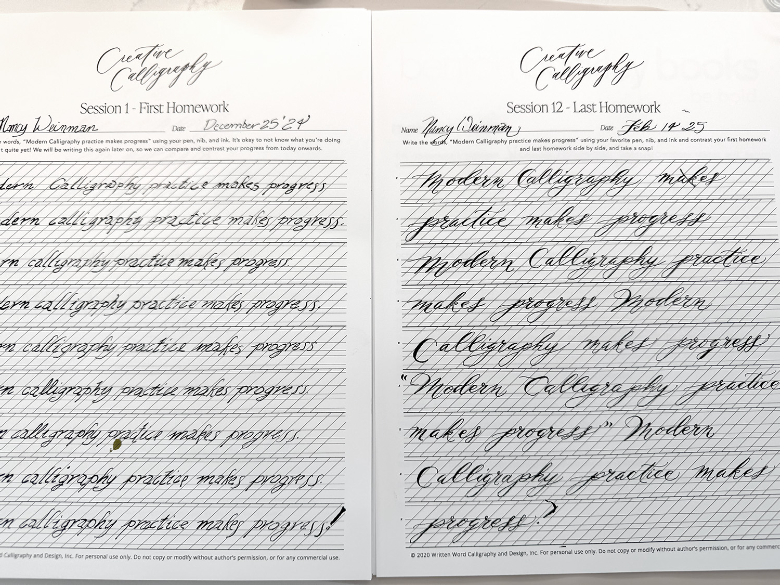 Creative
Calligraphy
Session 1 - First Homework
Nancy Weinman Date December 25 '24
words, "Modern Calligraphy practice makes progress" using your pen, nib, and ink. It's okay to not know what you're doing
quite yet! We will be writing this again later on, so we can compare and contrast your progress from today onwards.
dern Calligraphy practice makes progress
dern calligraphy practice makes progress.
rn calligraphy practice makes progress
ern calligraphy practice makes progress.
rn calligraphy practice makes progress
n calligraphy practice makes progress.
n calligraphy practice makes progress.
n calligraphy practice makes progress.
n calligraphy practice makes progress!
Calligraphy and Design, Inc. For personal use only. Do not copy or modify without author's permission, or for any commercial use.
Creative
Calligraphy
Session 12 - Last Homework
Name Nancy Weinman Date Feb 14 25
Write the words, "Modern Calligraphy practice makes progress" using your favorite pen, nib, and ink and contrast your first homework
and last homework side by side, and take a snap!
Modern Calligraphy makes
practice makes progress
Modern Calligraphy practice
makes progress Modern
Calligraphy makes progress
"Modern Calligraphy practice
makes progress" Modern
Calligraphy practice makes
progress?
© 2020 Written Word Calligraphy and Design, Inc. For personal use only. Do not copy or modify without author's permission, or for any comme